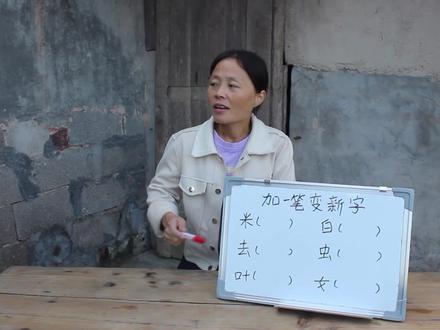 加一笔变新字
米( ) 白( )
去( ) 虫( )
叶( ) 女( )